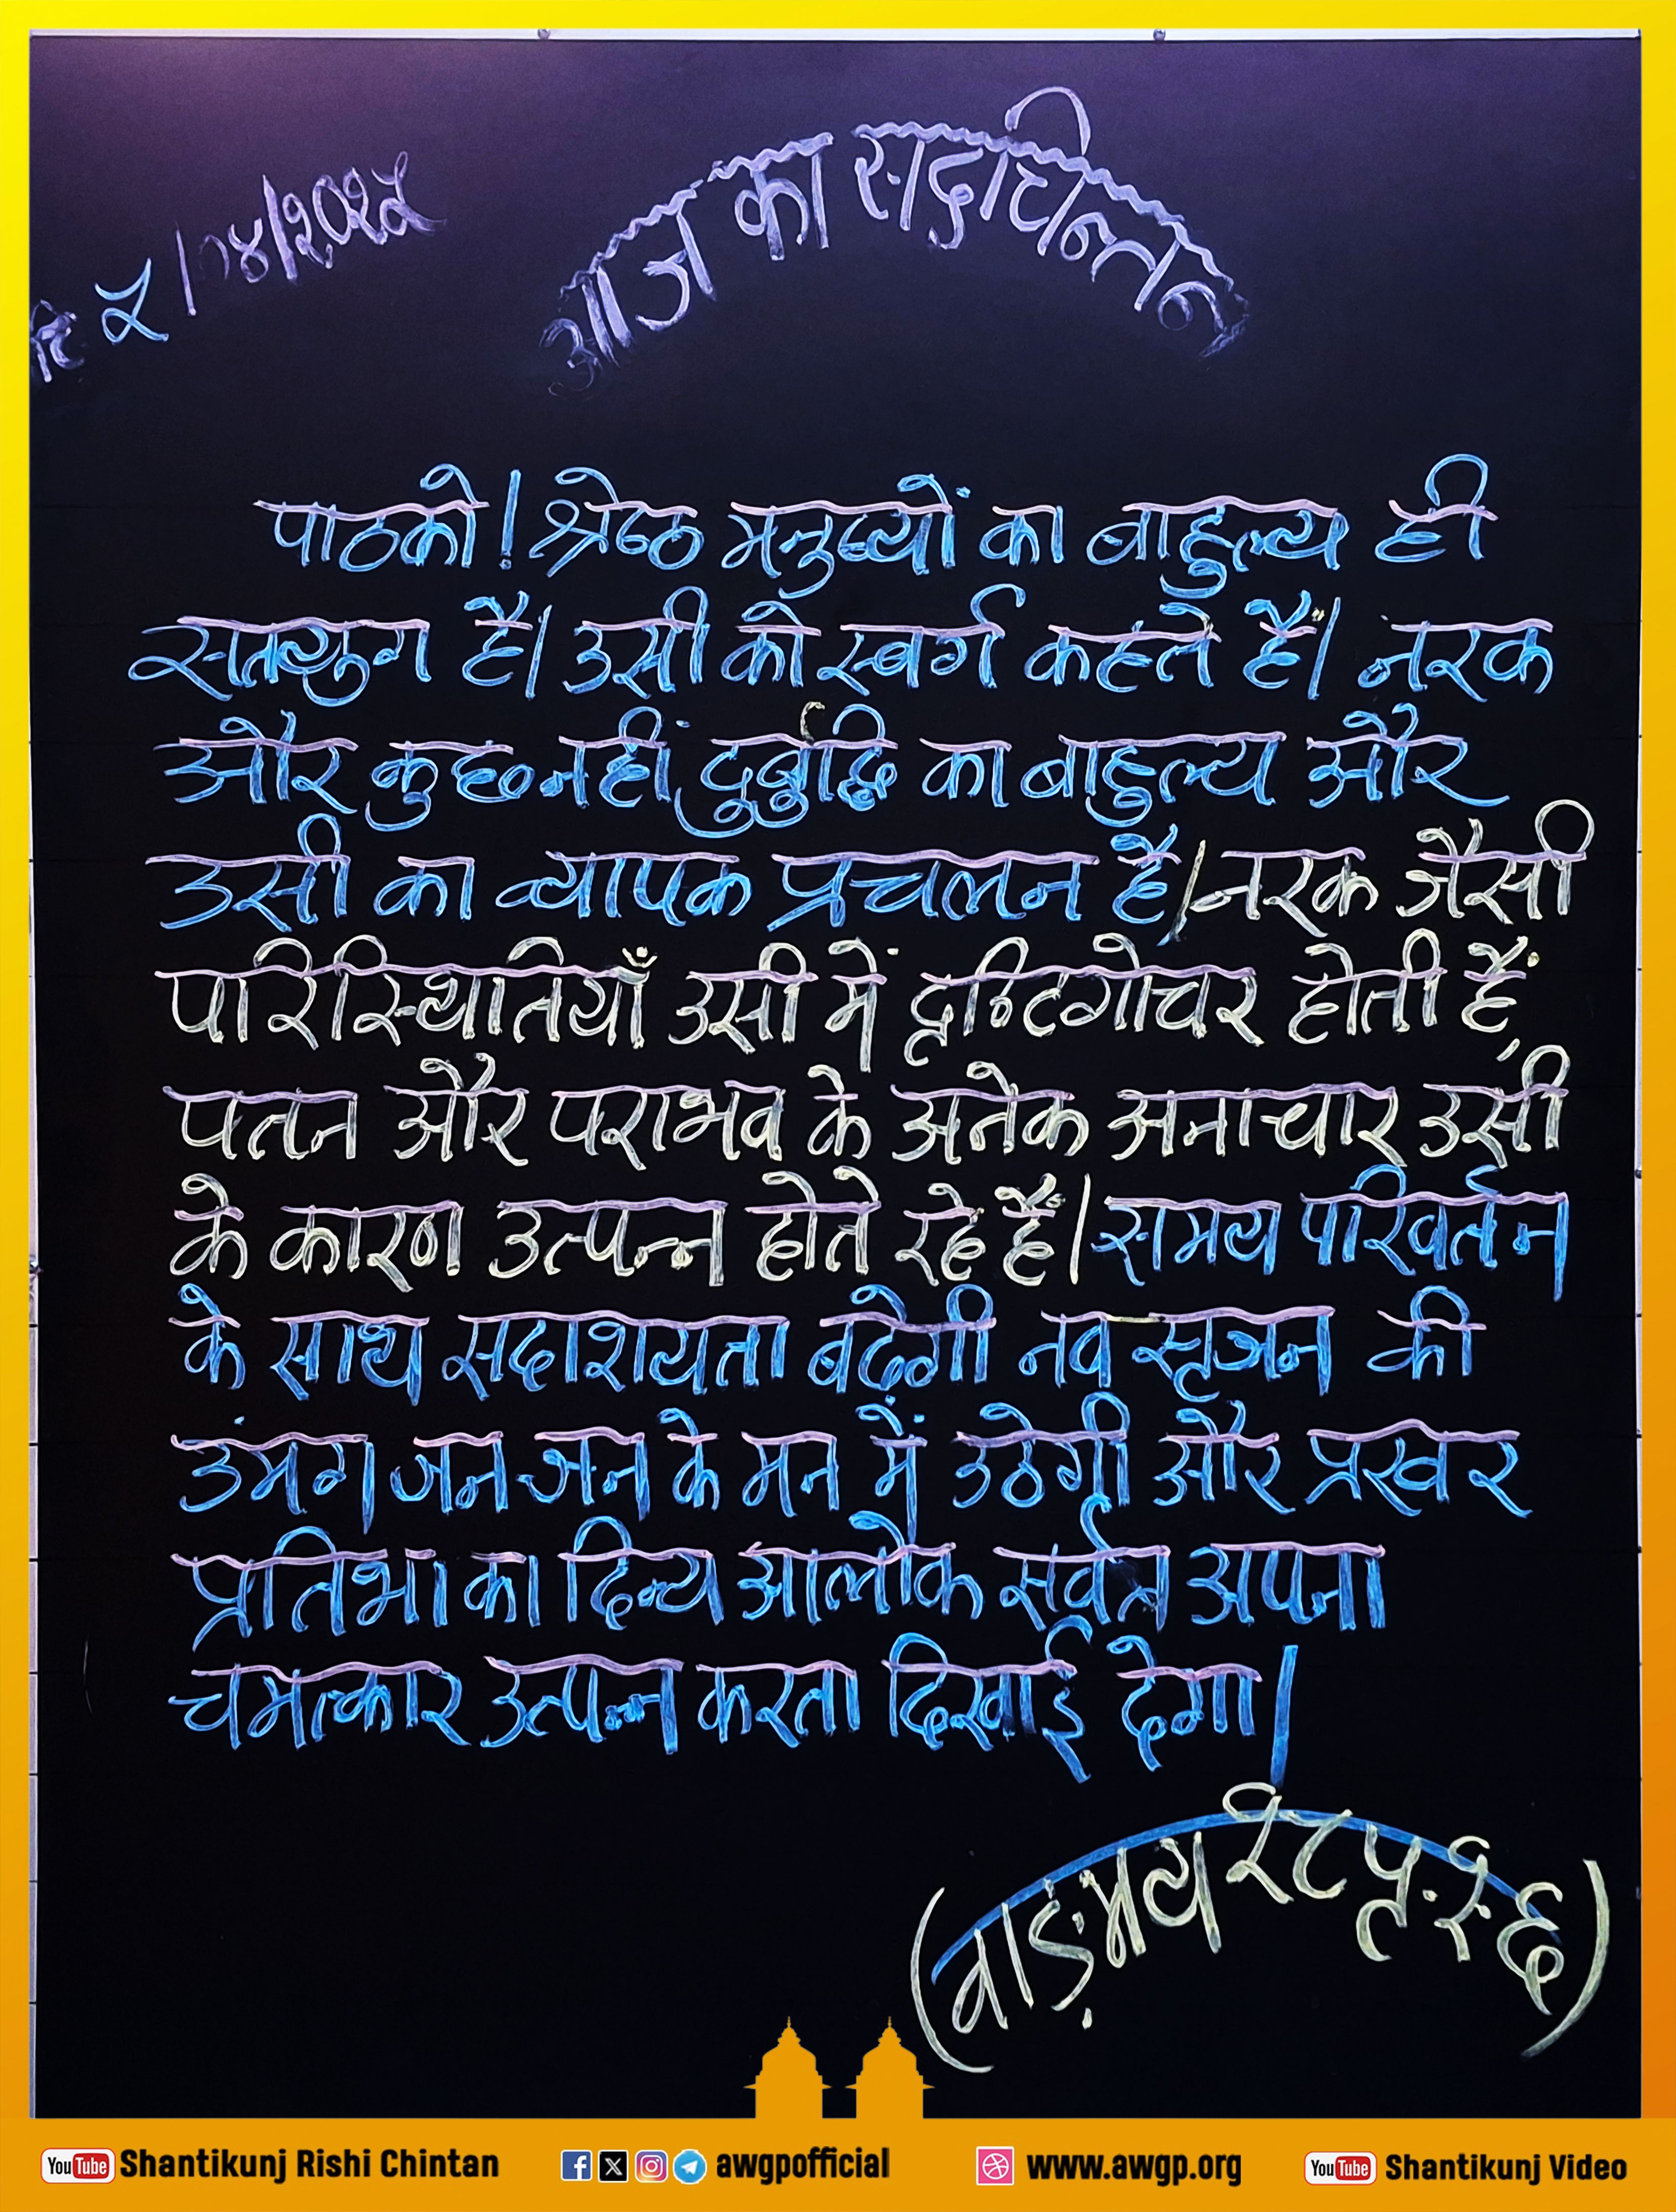 दि ५/०४/२०२५
आज का सद्चिन्तन
पाठको! श्रेष्ठ मनुष्यों का बाहुल्य ही
सतयुग है। उसी को स्वर्ग कहते हैं। नरक
और कुछ नहीं दुर्बुद्धि का बाहुल्य और
उसी का व्यापक प्रचलन है। नरक जैसी
परिस्थितियाँ उसी में दृष्टिगोचर होती हैं,
पतन और पराभव के अनेक अनाचार उसी
के कारण उत्पन्न होते रहे हैं। समय परिवर्तन
के साथ सदाशयता बढ़ेगी नव सृजन की
उंमग जन-जन के मन में उठेगी और प्रखर
प्रतिभा का दिव्य आलोक सर्वत्र अपना
चमत्कार उत्पन्न करता दिखाई देगा।
(वाङ्मय २८ पृ.
YouTube Shantikunj Rishi Chintan awgpofficial www.awgp.org YouTube Shantikunj Video